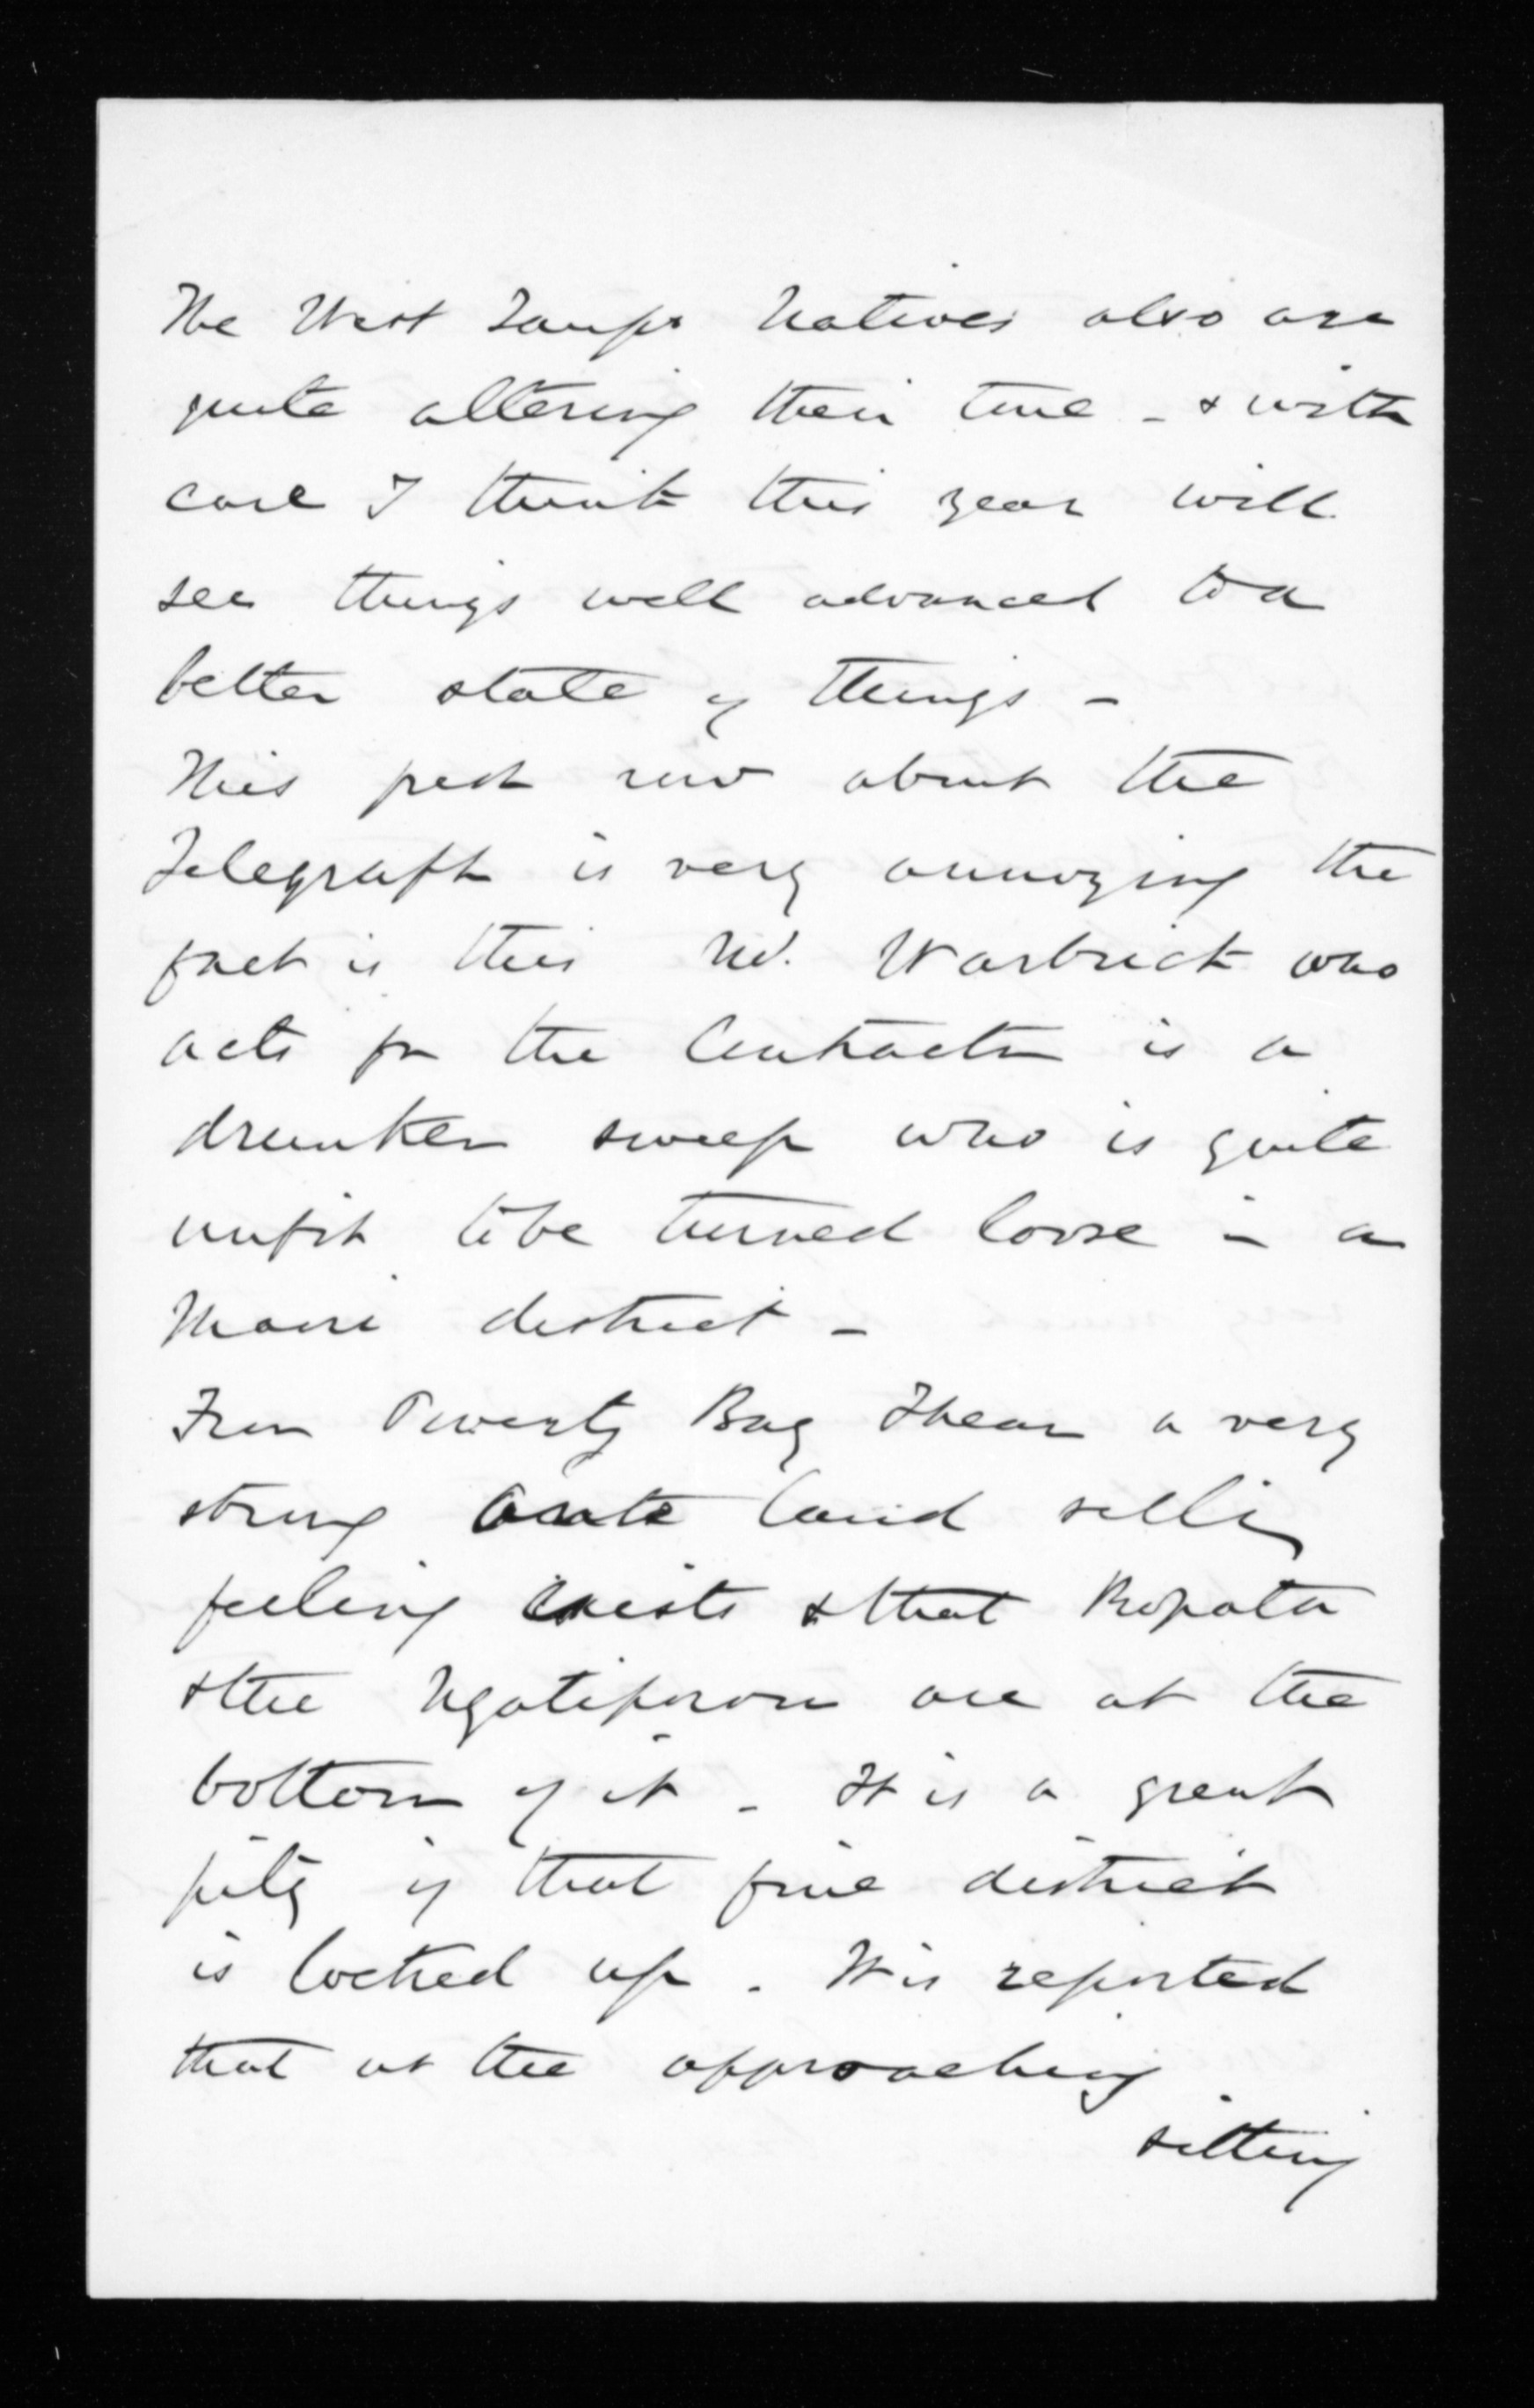 The West Taupo Natives also are
quite altering their tune - & with
care I think this year will
see things well advanced to a
better state of things -
This past row about the
Telegraph is very annoying the
fact is this Mr. Warbrick who
acts for the Contractor is a
drunken sweep who is quite
unfit to be turned loose in a
Maori district -
From Poverty Bay I hear a very
strong ante land selling
feeling exists & that Ropata
& the Ngatiporou are at the
bottom of it - It is a great
pity if that fine district
is locked up. It is reported
that at the approaching
sitting